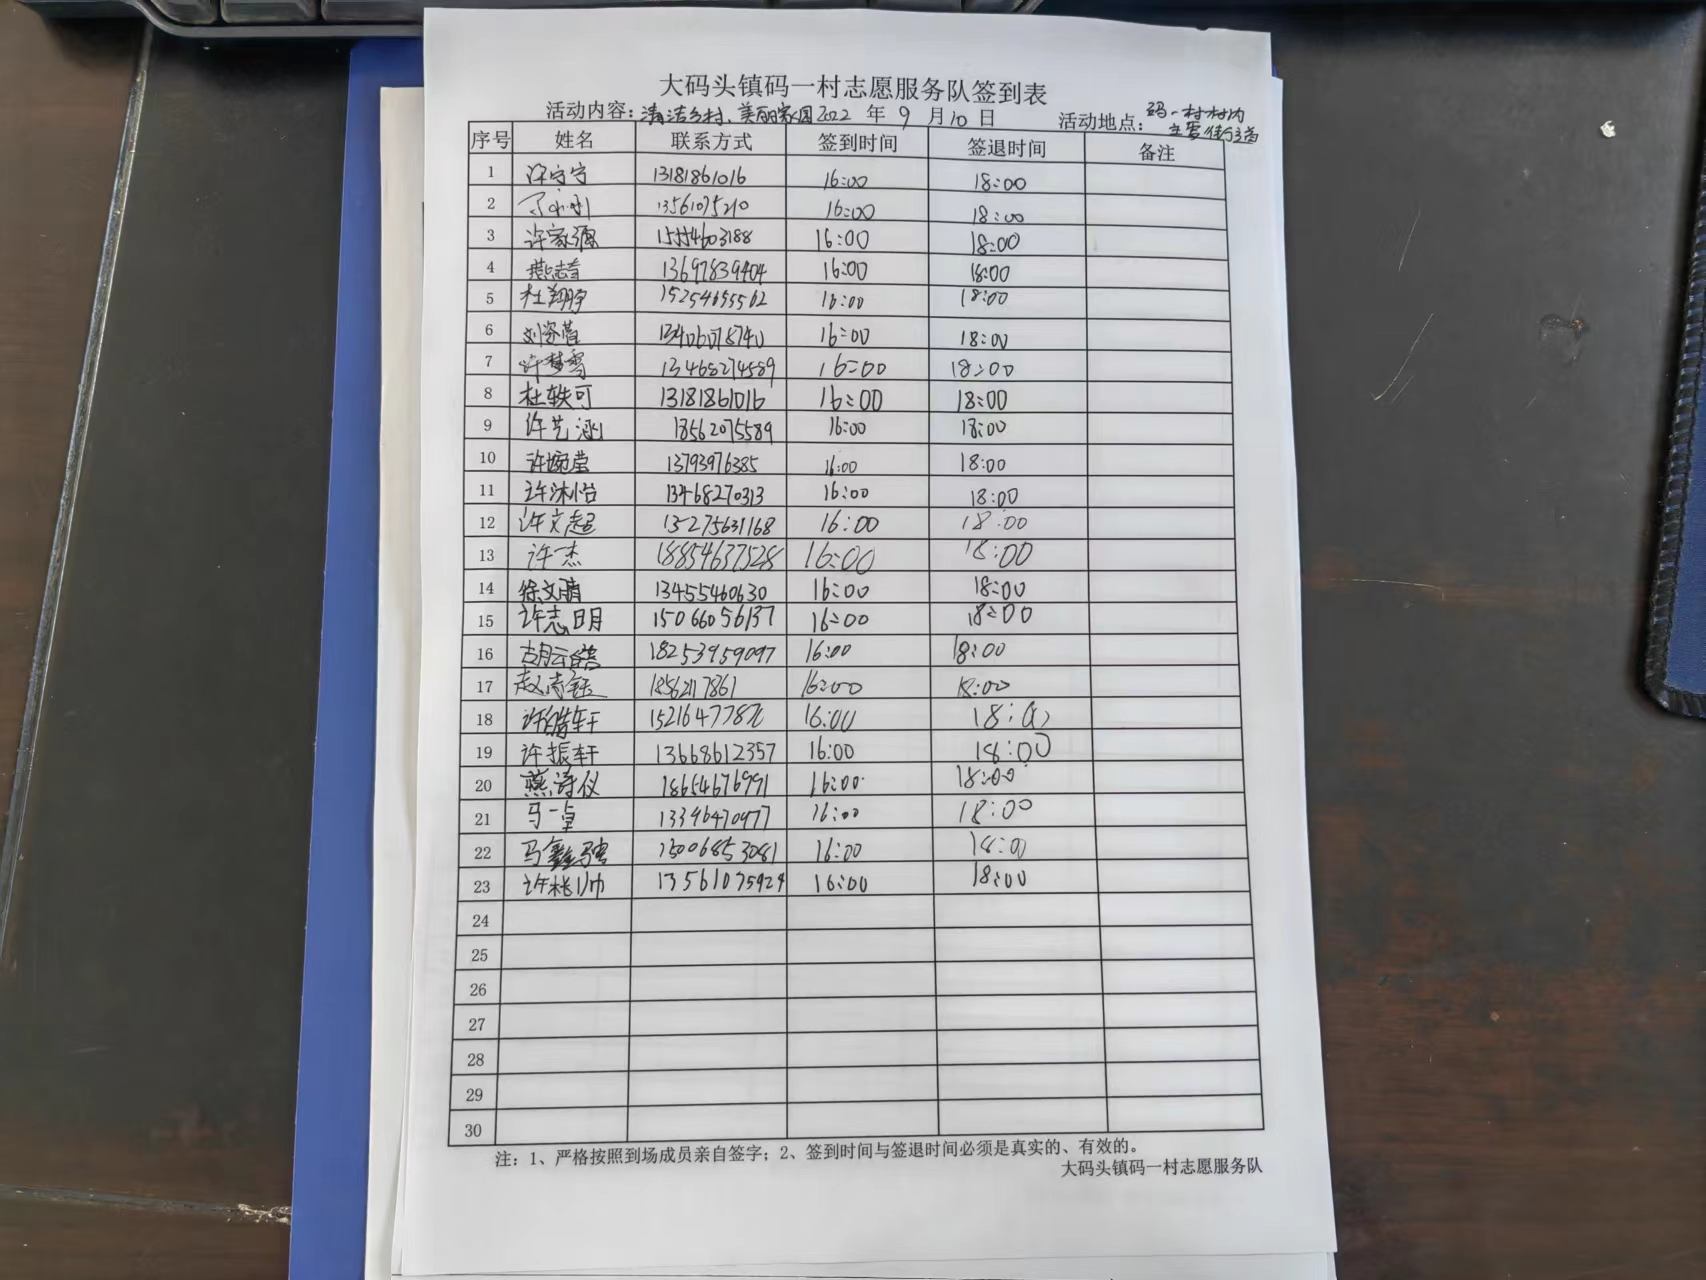 大码头镇码一村志愿服务队签到表
活动内容：清洁乡村、美丽家园 2022 年 9 月 10 日 活动地点：码一村村内主要街道
序号 姓名 联系方式 签到时间 签退时间 备注
1 许宁宁 13181861016 16:00 18:00
2 13561075210 16:00 18:00
3 许家源 15554603188 16:00 18:00
4 13697839404 16:00 18:00
5 杜翔宇 15254655562 16:00 18:00
6 16:00 18:00
7 许梦雪 13468274589 16:00 18:00
8 杜轶可 13181861016 16:00 18:00
9 许艺涵 18562075589 16:00 18:00
10 许婉莹 13793976385 16:00 18:00
11 许沐怡 13468270313 16:00 18:00
12 许文超 13275631168 16:00 18:00
13 许杰 18854637528 16:00 18:00
14 徐文晴 13455460630 16:00 18:00
15 许志明 15066056137 16:00 18:00
16 胡云皓 18253959097 16:00 18:00
17 16:00 18:00
18 许皓轩 16:00 18:00
19 许振轩 13668612357 16:00 18:00
20 燕诗仪 18654676991 16:00 18:00
21 马一卓 13396470977 16:00 18:00
22 马鑫骋 15006853081 16:00 18:00
23 13561075924 16:00 18:00
24
25
26
27
28
29
30
注：1、严格按照到场成员亲自签字；2、签到时间与签退时间必须是真实的、有效的。
大码头镇码一村志愿服务队